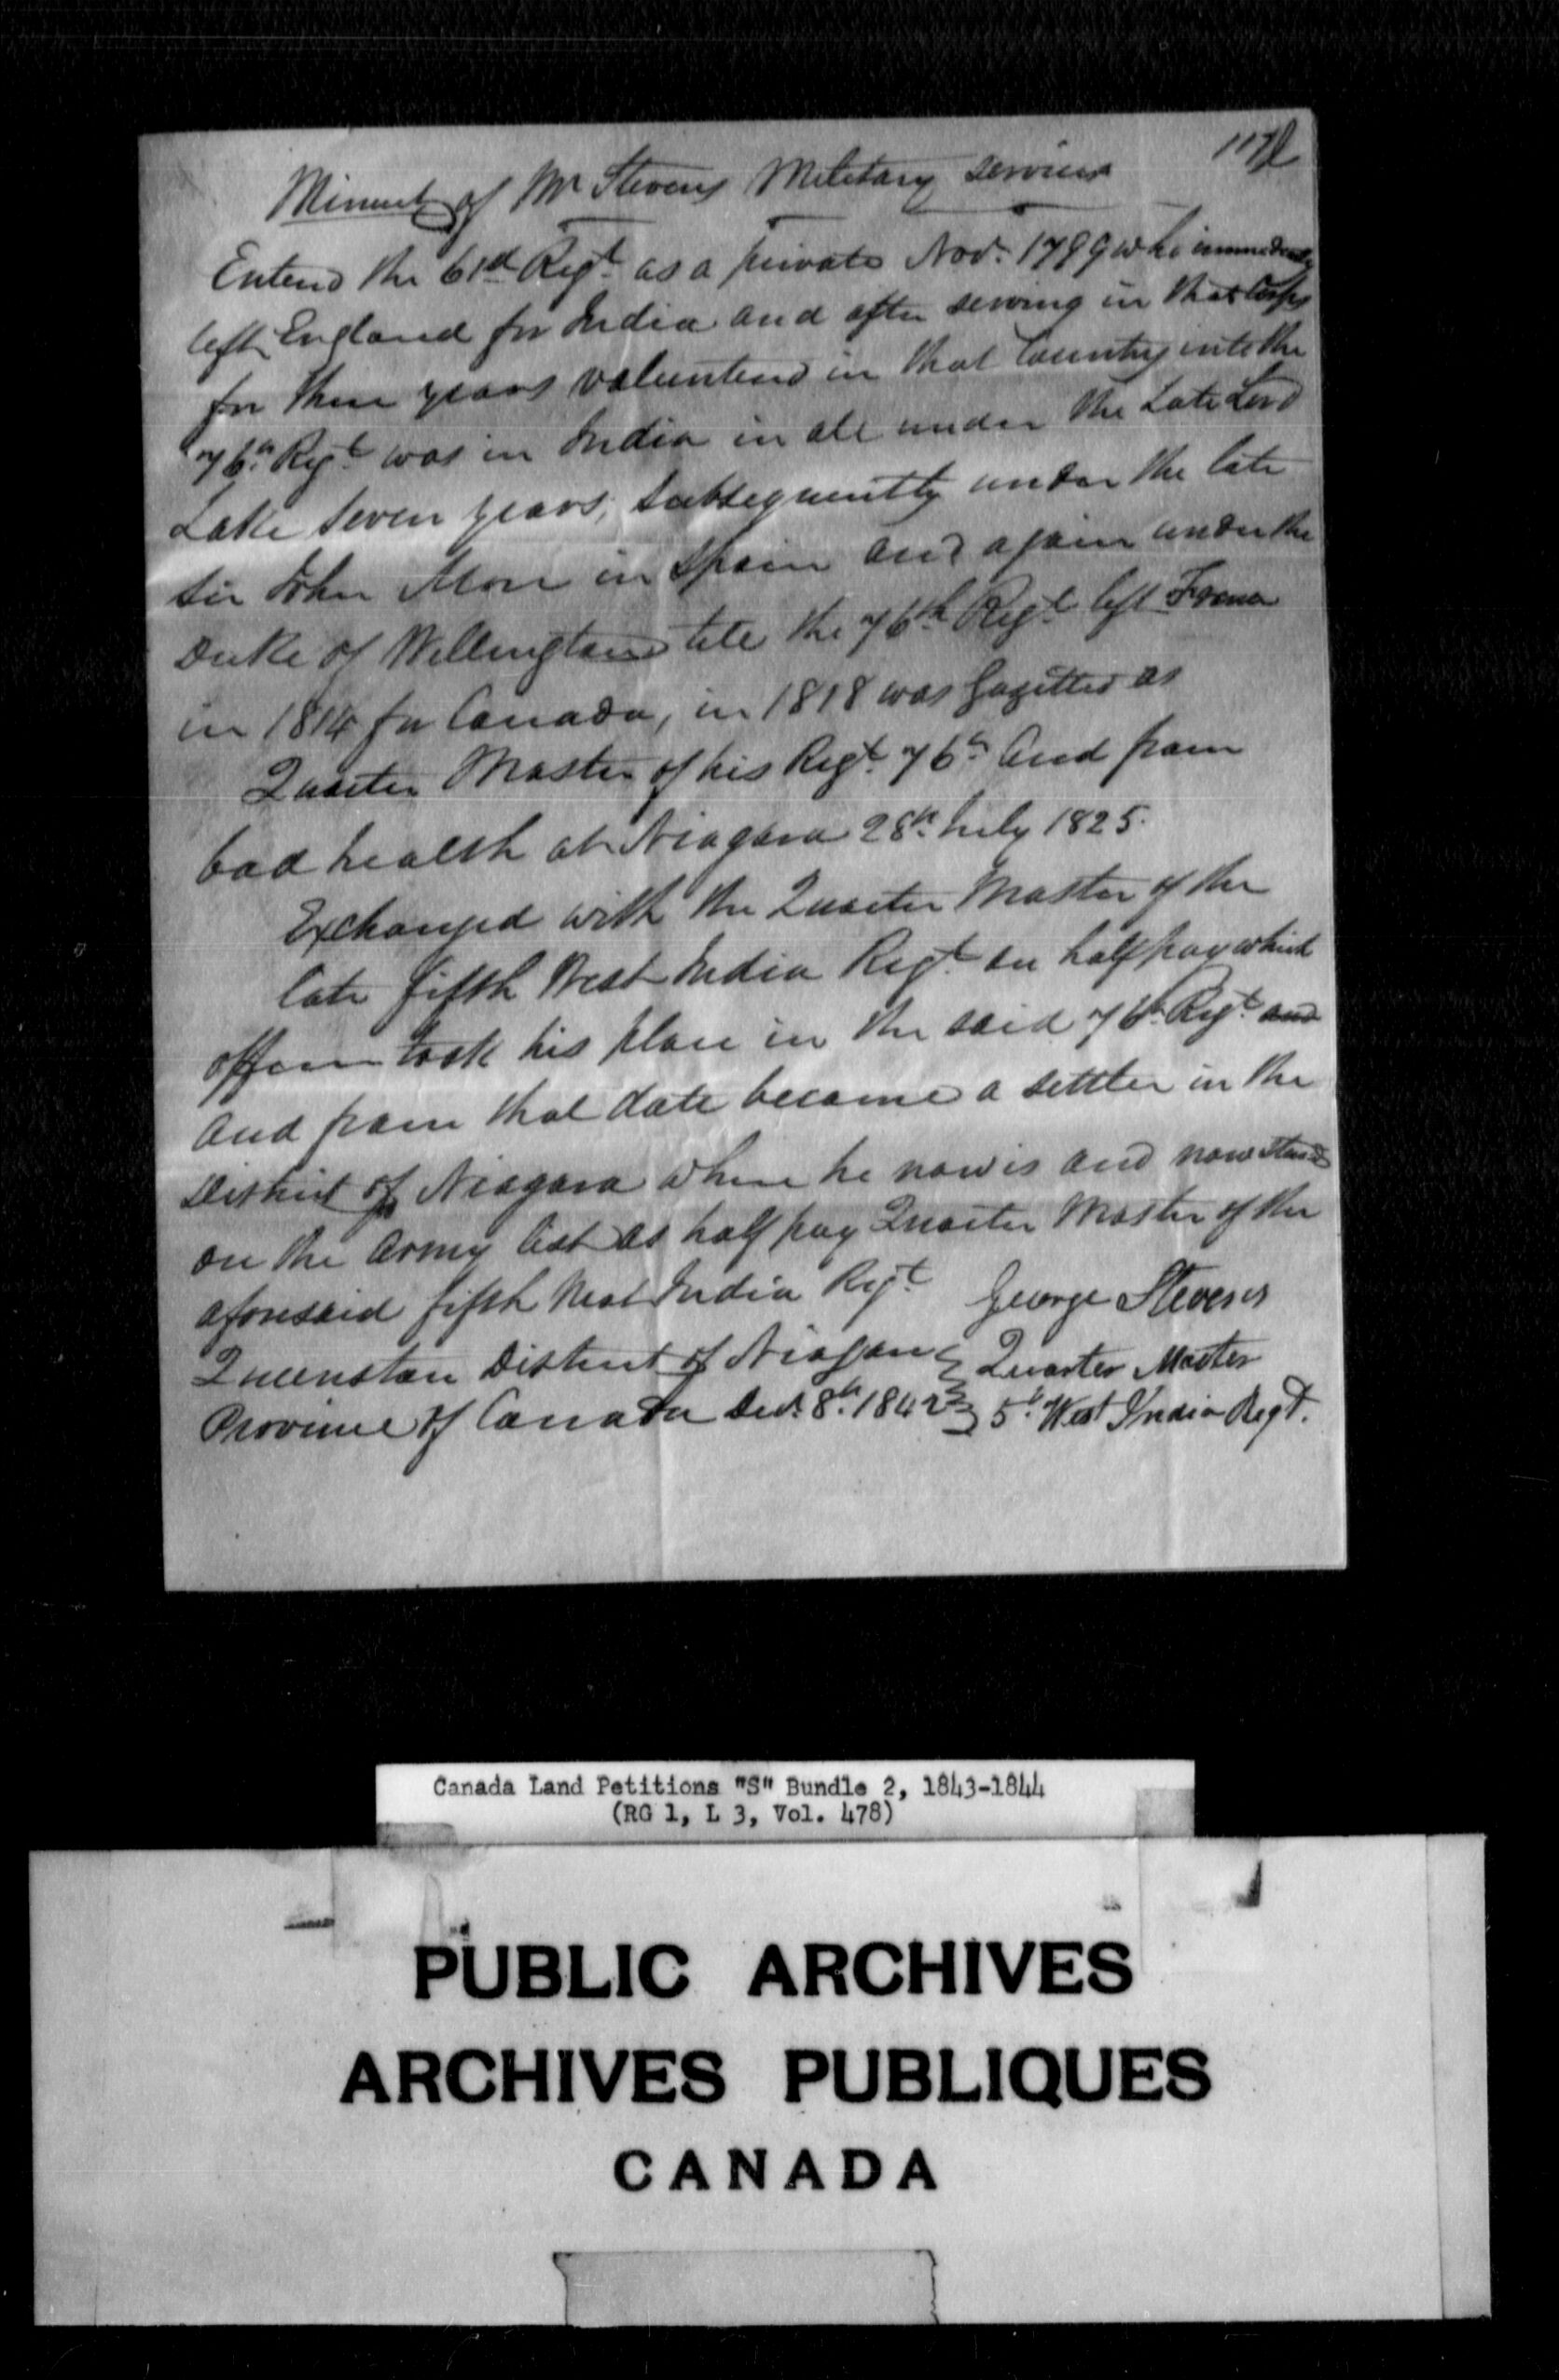 Minuet of Mr Stevens Military services
Enterd the 61d Regt as a private Novr 1799 who immediately
left England for India and after serving in that Corps
for three years volunterd in that Country into the
76th Regt was in India in all under the Late Lord
Lake seven years, subsequently under the late
Sir John More in Spain and again under the
Duke of Wellington tile the 76th Regt left France
in 1814 for Canada, in 1818 was gazetted as
Quarter Master of his Regt 76th and from
bad health at Niagara 28th July 1825.
Exchanged with the Quarter Master of the
late fifth West India Regt on half pay which
officer took his place in the said 76th Regt and
and from that date became a settler in the
District of Niagara where he now is and now stands
on the Army list as half pay Quarter Master of the
aforesaid fifth West India Regt George Stevens
Queenston District of Niagara Quarter Master
Province of Canada Decr 8th 1842 5th West India Regt.
Canada Land Petitions "S" Bundle 2, 1843-1844
(RG 1, L 3, Vol. 478)
PUBLIC ARCHIVES
ARCHIVES PUBLIQUES
CANADA